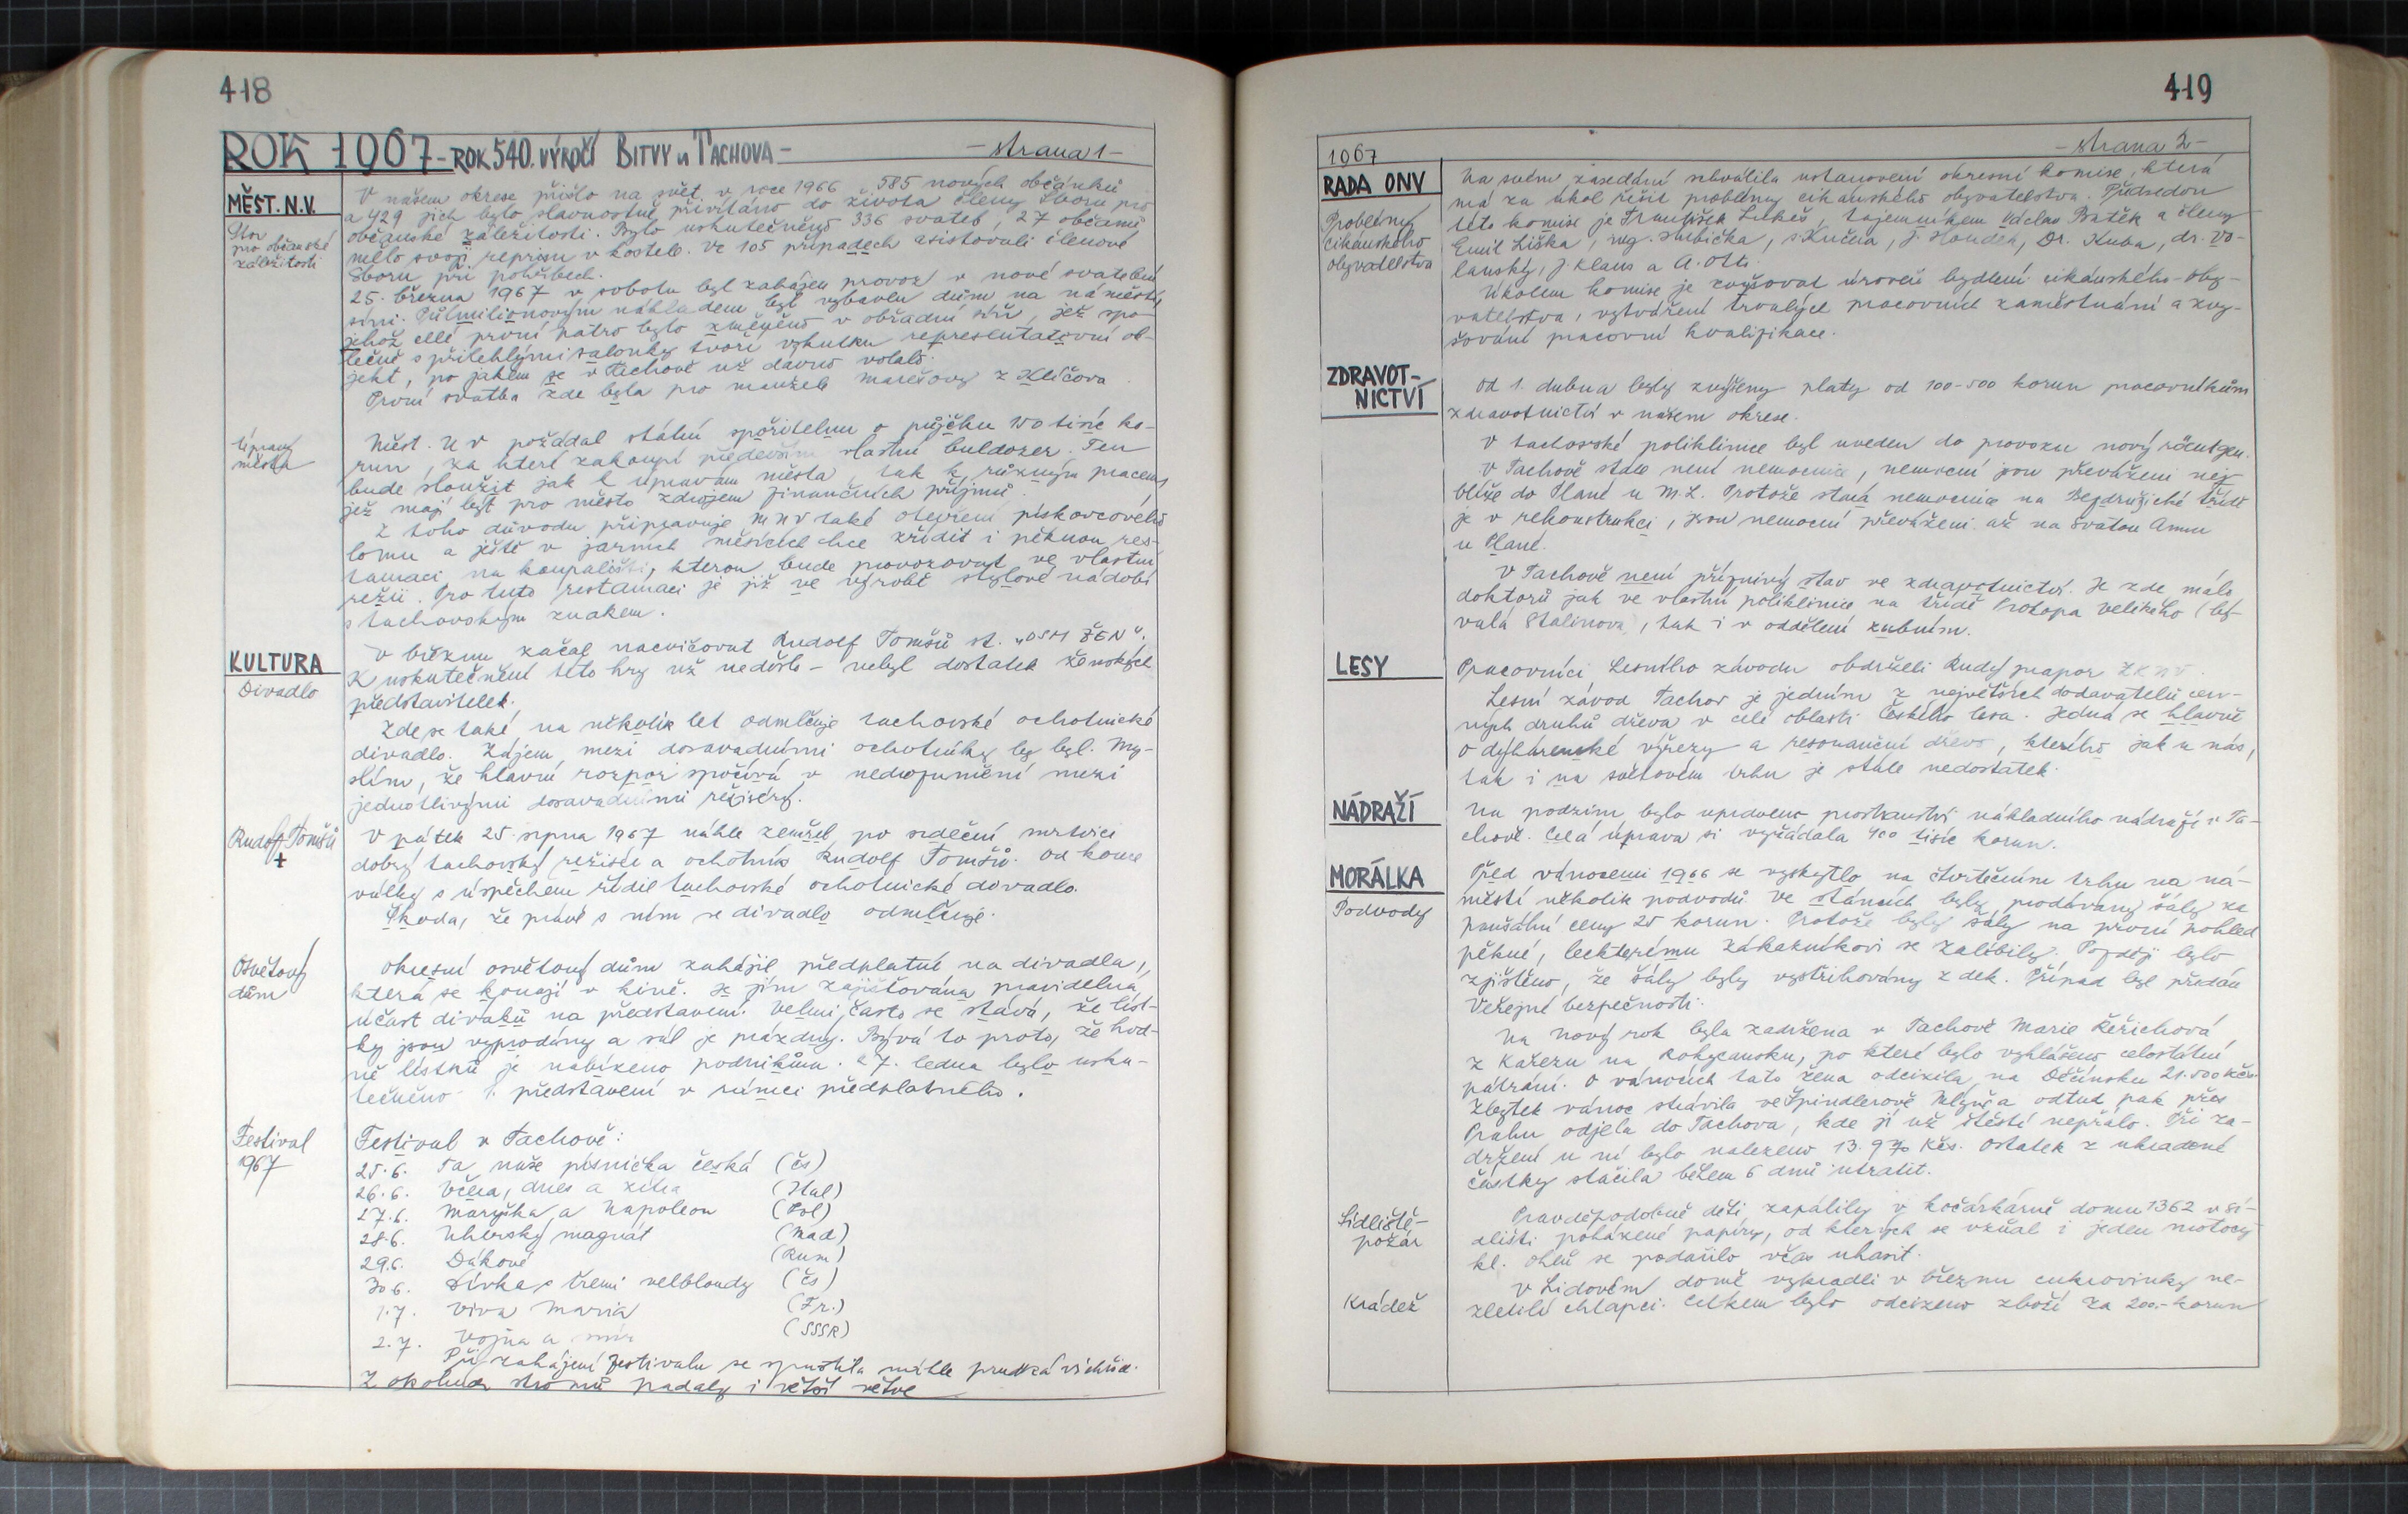 418
ROK 1967 - ROK 540. VÝROČÍ BITVY u TACHOVA -
- strana 1 -
MĚST. N.V.
Sbor
pro občanské
záležitosti
V našem okrese přišlo na svět v roce 1966 585 nových občánků
a 429 jich bylo slavnostně přivítáno do života členy Sboru pro
občanské záležitosti. Bylo uskutečněno 336 svateb, 27 občanů
mělo svoji reprisu v kostele. Ve 105 případech asistovali členové
Sboru při pohřbech.
25. března 1967 v sobotu byl zahájen provoz v nové svatební
síni. Půlmilionovým nákladem byl vybaven dům na náměstí,
jehož celé první patro bylo změněno v obřadní síň, jež spo-
lečně s přilehlými salonky tvoří vskutku representativní ob-
jekt, po jakém se v Tachově už dávno volalo.
První svatba zde byla pro manžele Marešovy z Klíčova
Úpravy
města
Měst. NV požádal státní spořitelnu o půjčku 150 tisíc ko-
run, za které zakoupí především vlastní buldozer. Ten
bude sloužit jak k úpravám města tak k různým pracem,
jež mají být pro město zdrojem finančních příjmů.
Z toho důvodu připravuje MNV také otevření pískovcového
lomu a ještě v jarních měsících chce zřídit i pěknou res-
tauraci na koupališti, kterou bude provozovat ve vlastní
režii. Pro tuto restauraci je již ve výrobě stylové nádobí
s tachovským znakem.
KULTURA
Divadlo
V březnu začal nacvičovat Rudolf Tomšů st. "OSM ŽEN".
K uskutečnění této hry už nedošlo - nebyl dostatek ženských
představitelek.
Zde se také na několik let odmlčuje tachovské ochotnické
divadlo. Zájem mezi dosavadními ochotníky by byl. My-
slím, že hlavní rozpor spočívá v nedorozumění mezi
jednotlivými dosavadními režiséry.
Rudolf Tomšů
†
V pátek 25. srpna 1967 náhle zemřel po srdeční mrtvici
dobrý tachovský režisér a ochotník Rudolf Tomšů. Od konce
války s úspěchem řídil tachovské ochotnické divadlo.
Škoda, že právě s ním se divadlo odmlčuje.
Osvětový
dům
Okresní osvětový dům zahájil předplatné na divadla,
která se konají v kině. Je jím zajišťována pravidelná
účast diváků na představení. Velmi často se stává, že líst-
ky jsou vyprodány a sál je prázdný. Bývá to proto, že hod-
ně lístků je nabízeno podnikům. 27. ledna bylo usku-
tečněno 1. představení v rámci předplatného.
Festival
1967
Festival v Tachově:
25.6. Ta naše písnička česká (čs)
26.6. Včera, dnes a zítra (Ital)
27.6. Maryška a Napoleon (Pol)
28.6. Uherský magnát (Maď)
29.6. Dákové (Rum)
30.6. Dívka s třemi velbloudy (čs)
1.7. Viva Maria (Fr.)
2.7. Vojna a mír (SSSR)
Při zahájení festivalu se spustila náhle prudká vichřice.
Z okolních stromů padaly i větší větve
419
1967
- strana 2 -
RADA ONV
Problémy
cikánského
obyvatelstva
Na svém zasedání schválila ustanovení okresní komise, která
má za úkol řešit problémy cikánského obyvatelstva. Předsedou
této komise je František Lukeš, tajemníkem Václav Bartěk a členy
Emil Liška, mg. Hubička, s. Kučera, J. Houdek, Dr. Kuba, dr. Vo-
lanský, J Klaus a A. Otti.
Úkolem komise je zvyšovat úroveň bydlení cikánského oby-
vatelstva, vytváření trvalých pracovních zaměstnání a zvy-
šování pracovní kvalifikace.
ZDRAVOT-
NICTVÍ
Od 1. dubna byly zvýšeny platy od 100-500 korun pracovníkům
zdravotnictví v našem okrese.
V tachovské poliklinice byl uveden do provozu nový röentgen.
V Tachově stále není nemocnice, nemocní jsou převáženi nej-
blíže do Plané u M.L. Protože stará nemocnice na Bezdružické třídě
je v rekonstrukci, jsou nemocní převáženi až na Svatou Annu
u Plané.
V Tachově není příznivý stav ve zdravotnictví. Je zde málo
doktorů jak ve vlastní poliklinice na třídě Prokopa Velikého (bý-
valá Stalinova), tak i v oddělení zubním.
LESY
Pracovníci Lesního závodu obdrželi Rudý prapor ZKNV.
Lesní závod Tachov je jedním z největších dodavatelů cen-
ných druhů dřeva v celé oblasti Českého lesa. Jedná se hlavně
o dýhárenské výřezy a resonanční dřevo, kterého jak u nás,
tak i na světovém trhu je stále nedostatek.
NÁDRAŽÍ
Na podzim bylo upraveno prostranství nákladního nádraží v Ta-
chově. Celá úprava si vyžádala 400 tisíc korun.
MORÁLKA
Podvody
Před vánocemi 1966 se vyskytlo na čtvrtečním trhu na ná-
městí několik podvodů. Ve stáncích byly prodávány šály za
paušální ceny 25 korun. Protože byly šály na první pohled
pěkné, leckterému zákazníkovi se zalíbily. Později bylo
zjištěno, že šály byly vystřihovány z dek. Případ byl předán
Veřejné bezpečnosti.
Na Nový rok byla zadržena v Tachově Marie Řeřichová
z Kařezu na Rokycansku, po které bylo vyhlášeno celostátní
pátrání. O vánocích tato žena odcizila na Děčínsku 21.500 Kčs.
Zbytek vánoc strávila ve Špindlerově Mlýně a odtud pak přes
Prahu odjela do Tachova, kde jí už štěstí nepřálo. Při za-
držení u ní bylo nalezeno 13.970 Kčs. Ostatek z ukradené
částky stačila během 6 dnů utratit.
Sídliště-
požár
Pravděpodobně děti zapálily v kočárkárně domu 1362 v sí-
dlišti poházené papíry, od kterých se vzňal i jeden motocy-
kl. Oheň se podařilo včas uhasit.
Krádež
V Lidovém domě vykradli v březnu cukrovinky ne-
zletilí chlapci. Celkem bylo odcizeno zboží za 200.- korun